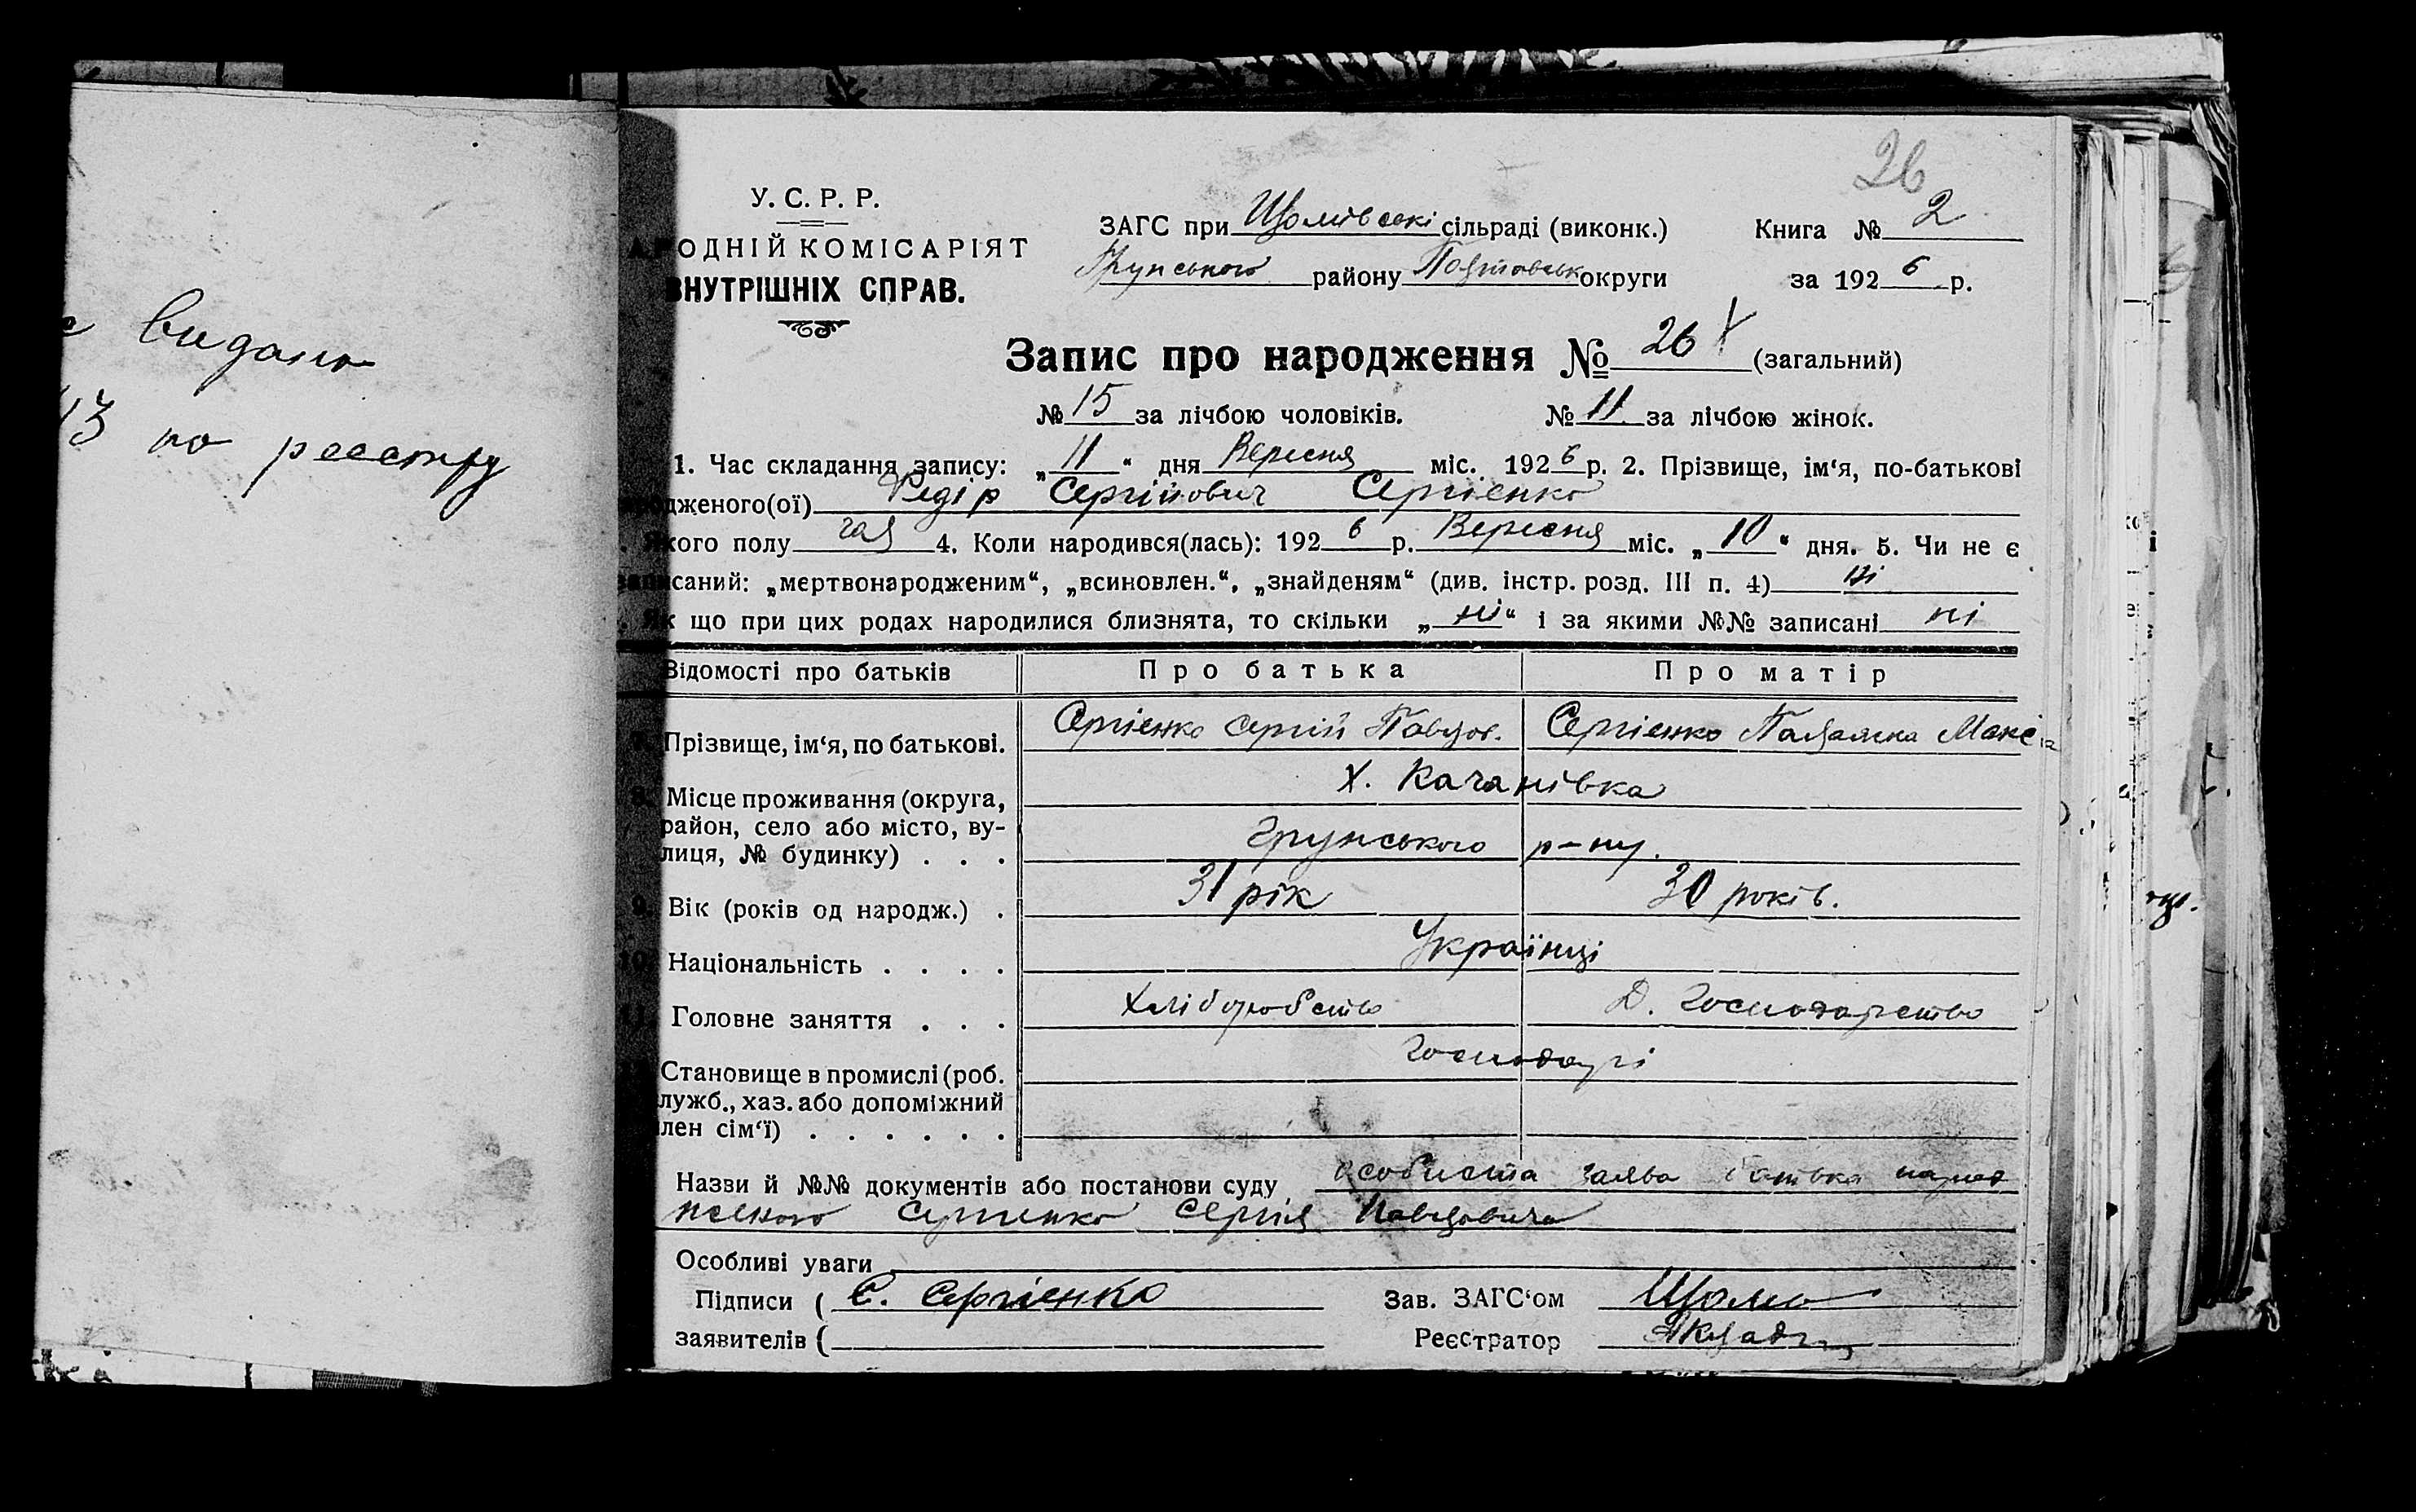 видано
13 по реєстру
26
У. С. Р. Р.
АРОДНІЙ КОМІСАРІЯТ
ВНУТРІШНІХ СПРАВ.
ЗАГС при Щомівські сільраді (виконк.) Книга № 2
Грунського району Полтовськ округи за 1926 р.
Запис про народження № 26 (загальний)
№ 15 за лічбою чоловіків. № 11 за лічбою жінок.
1. Час складання запису: „11“ дня Вересня міс. 1926 р. 2. Прізвище, ім‘я, по-батькові
родженого(ої) Федір Сергійович Сергіенко
Якого полу чол 4. Коли народився(лась): 1926 р. Вересня міс. „10“ дня. 5. Чи не є
записаний: „мертвонародженим“, „всиновлен.“, „знайденям“ (див. інстр. розд. III п. 4) ні
Як що при цих родах народилися близнята, то скільки „ні“ і за якими №№ записані ні
Відомості про батьків Про батька Про матір
7. Прізвище, ім‘я, по батькові. Сергіенко Сергій Павлов. Сергіенко Палажка Макс
8. Місце проживання (округа, район, село або місто, ву-
лиця, № будинку) . . . Х. Качанівка
Грунського р-ну.
9. Вік (років од народж.) . 31 рік 30 років.
10. Національність . . . . Українці
11. Головне заняття . . . Хліборобство Д. Господарство
Становище в промислі (роб. Господарі
лужб., хаз. або допоміжний
лен сім‘ї) . . . . . .
Назви й №№ документів або постанови суду особиста заява батька народ
женого Сергиенко Сергія Павловича
Особливі уваги
Підписи ( С. Сергіенко Зав. ЗАГС‘ом Щомо
заявителів ( Реєстратор